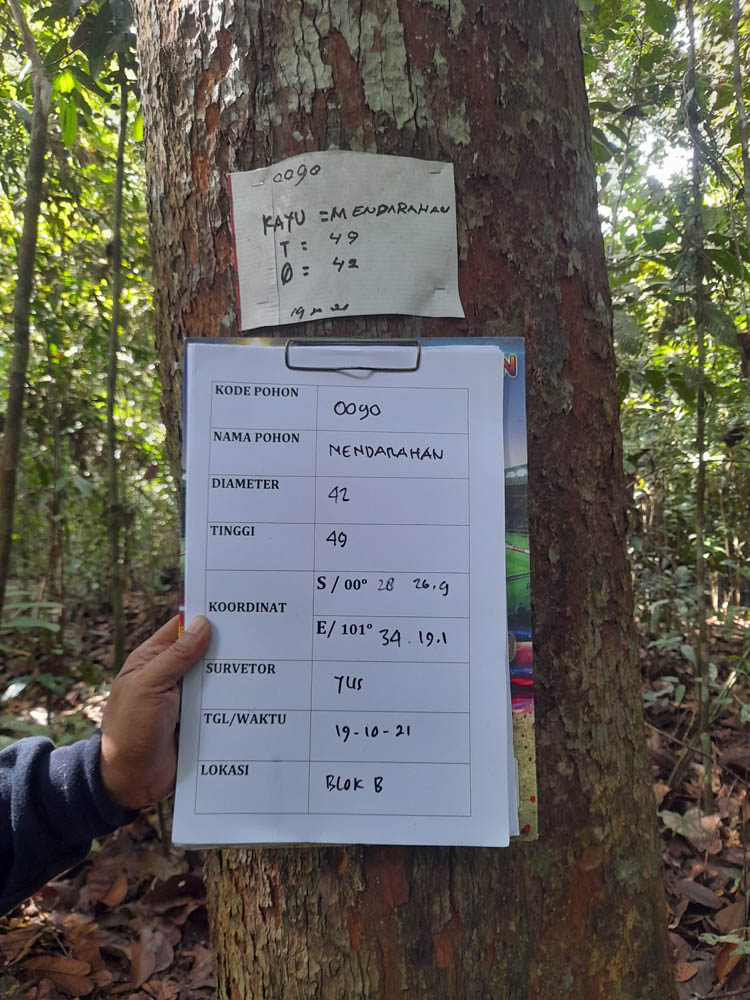 0090
KAYU = MENDARAHAN
T : 49
Ø = 42
19 10 21
KODE POHON 0090
NAMA POHON MENDARAHAN
DIAMETER 42
TINGGI 49
KOORDINAT S / 00° 28 26,9
E/ 101° 34.19.1
SURVETOR YUS
TGL/WAKTU 19-10-21
LOKASI BLOK B
N